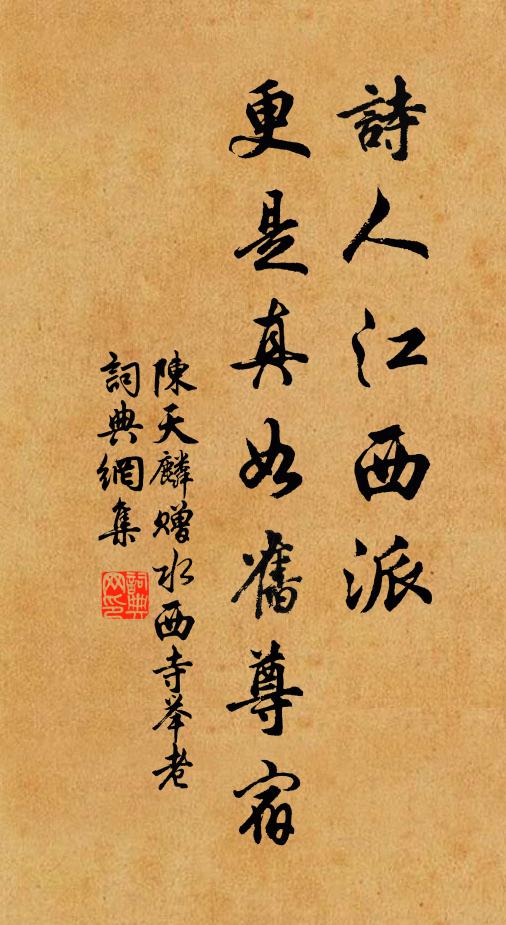 詩人江西派
更是真如舊尊宿
陳天麟贈水西寺举老
詞典網集
詞典
网印